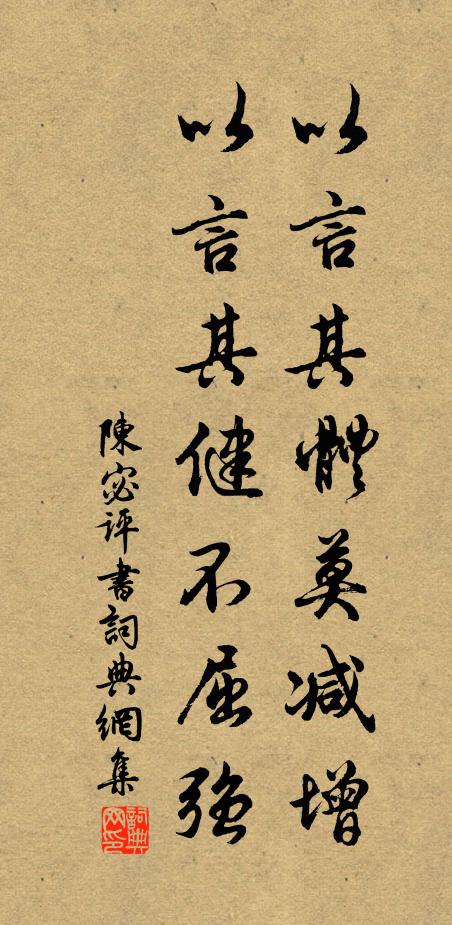 以言其體莫減增
以言其健不屈強
陳宓評書詞典網集
詞典网印